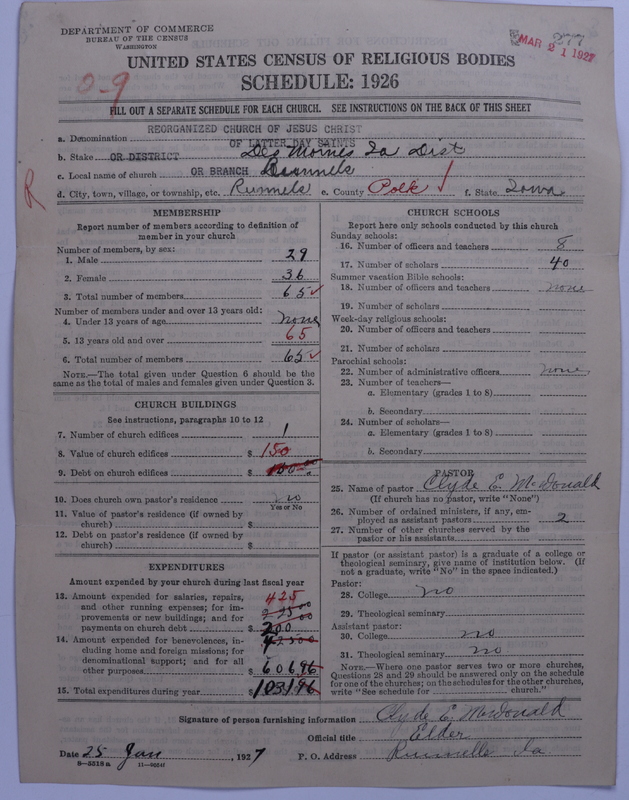 DEPARTMENT OF COMMERCE
BUREAU OF THE CENSUS
WASHINGTON
MAR 21 1927
UNITED STATES CENSUS OF RELIGIOUS BODIES
SCHEDULE: 1926
0-9
FILL OUT A SEPARATE SCHEDULE FOR EACH CHURCH. SEE INSTRUCTIONS ON THE BACK OF THIS SHEET
REORGANIZED CHURCH OF JESUS CHRIST
a. Denomination OF LATTER DAY SAINTS
b. Stake OR DISTRICT Des Moines Ia Dist
c. Local name of church OR BRANCH Runnels
R
d. City, town, village, or township, etc. Runnells e. County Polk f. State Iowa
MEMBERSHIP
Report number of members according to definition of
member in your church
Number of members, by sex:
1. Male 29
2. Female 36
3. Total number of members 65
Number of members under and over 13 years old:
4. Under 13 years of age none
5. 13 years old and over 65
6. Total number of members 65
NOTE.—The total given under Question 6 should be
same as the total of males and females given under Question 3.
CHURCH BUILDINGS
See instructions, paragraphs 10 to 12
7. Number of church edifices 1
8. Value of church edifices $ 150
9. Debt on church edifices $
10. Does church own pastor's residence no
Yes or No
11. Value of pastor's residence (if owned by
church) $
12. Debt on pastor's residence (if owned by
church) $
EXPENDITURES
Amount expended by your church during last fiscal year
13. Amount expended for salaries, repairs, 425
and other running expenses; for im-
provements or new buildings; and for
payments on church debt $ 200
14. Amount expended for benevolences, in-
cluding home and foreign missions; for
denominational support; and for all
other purposes $ 606.96
15. Total expenditures during year $ 1031.96
CHURCH SCHOOLS
Report here only schools conducted by this church
Sunday schools:
16. Number of officers and teachers 8
17. Number of scholars 40
Summer vacation Bible schools:
18. Number of officers and teachers none
19. Number of scholars
Week-day religious schools:
20. Number of officers and teachers
21. Number of scholars
Parochial schools:
22. Number of administrative officers none
23. Number of teachers—
a. Elementary (grades 1 to 8)
b. Secondary
24. Number of scholars—
a. Elementary (grades 1 to 8)
b. Secondary
PASTOR
25. Name of pastor Clyde E. McDonald
(If church has no pastor, write "None")
26. Number of ordained ministers, if any, em-
ployed as assistant pastors 2
27. Number of other churches served by the
pastor or his assistants
If pastor (or assistant pastor) is a graduate of a college or
theological seminary, give name of institution below. (If
not a graduate, write "No" in the space indicated.)
Pastor:
28. College no
29. Theological seminary
Assistant pastor:
30. College no
31. Theological seminary no
NOTE.—Where one pastor serves two or more churches,
Questions 28 and 29 should be answered only on the schedule
for one of the churches; on the schedules for the other churches,
write "See schedule for church."
Signature of person furnishing information Clyde E. McDonald
Official title Elder
Date 25 Jan, 1927 P. O. Address Runnells Ia.
8-5318a